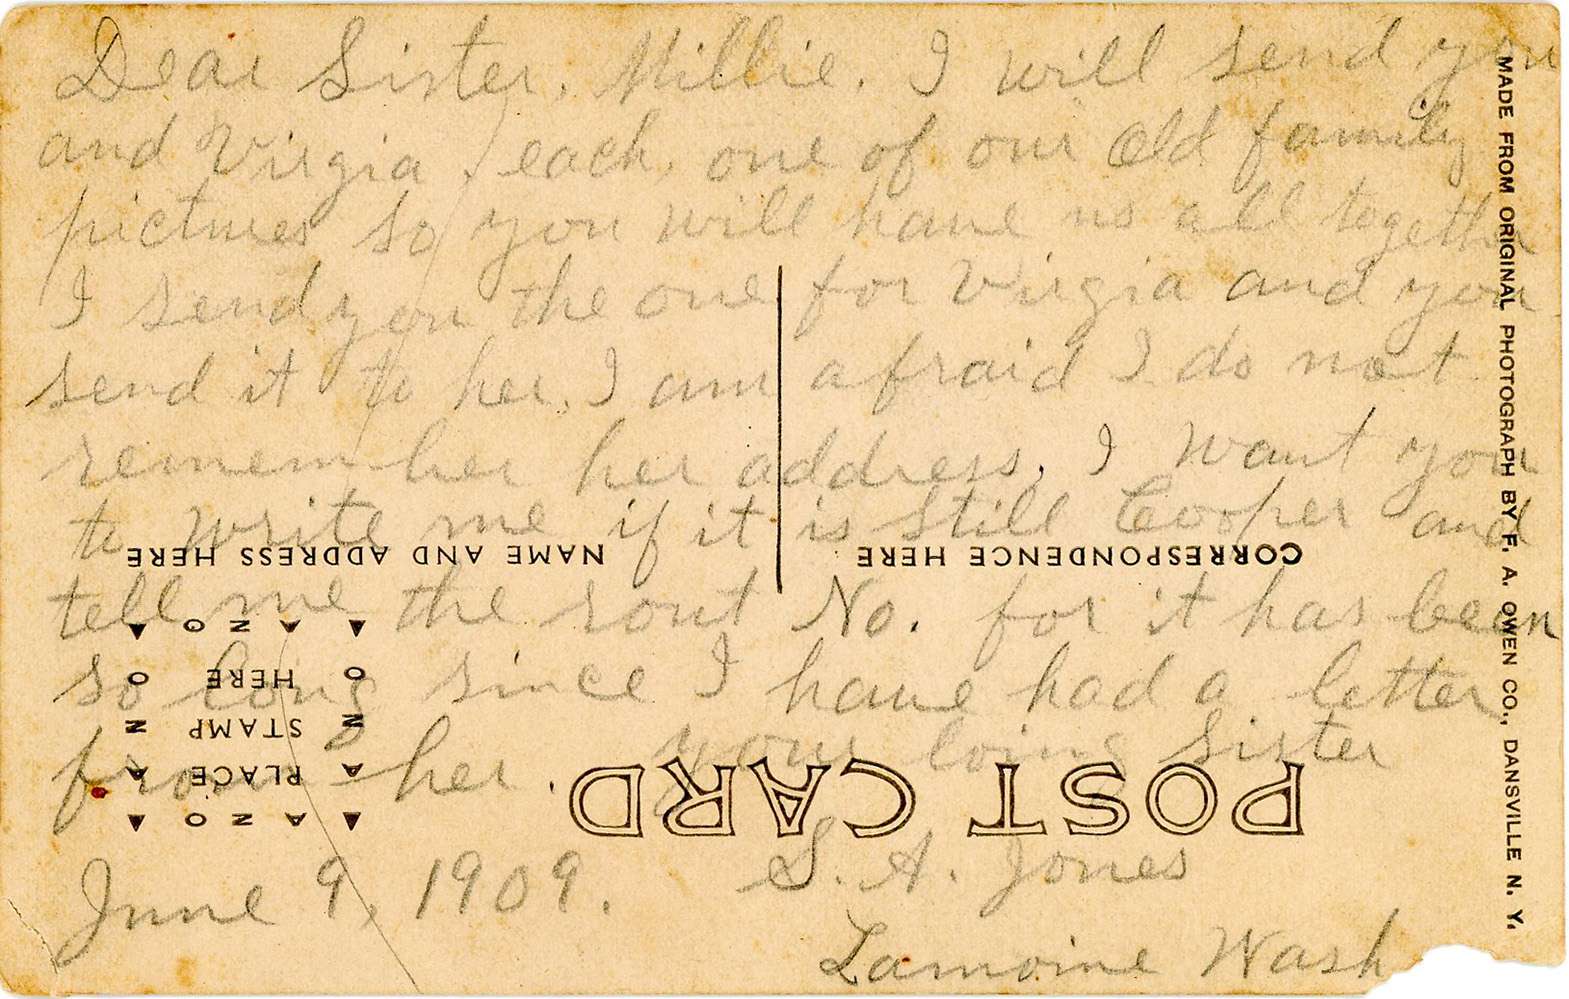 Dear Sister, Millie. I will send you
and Virgia, each, one of our old family
pictures so you will have us all together
I send you the one for Virgia and you
send it to her, I am afraid I do not
remember her address, I want you
to write me if it is still Cooper and
tell me the rout No. for it has been
so long since I have had a letter
from her. your loing Sister
June 9, 1909. S. A. Jones
Lamoine Wash
MADE FROM ORIGINAL PHOTOGRAPH BY F. A. OWEN CO., DANSVILLE N. Y.
POST CARD
CORRESPONDENCE HERE
NAME AND ADDRESS HERE
AZO
PLACE
STAMP
HERE
AZO